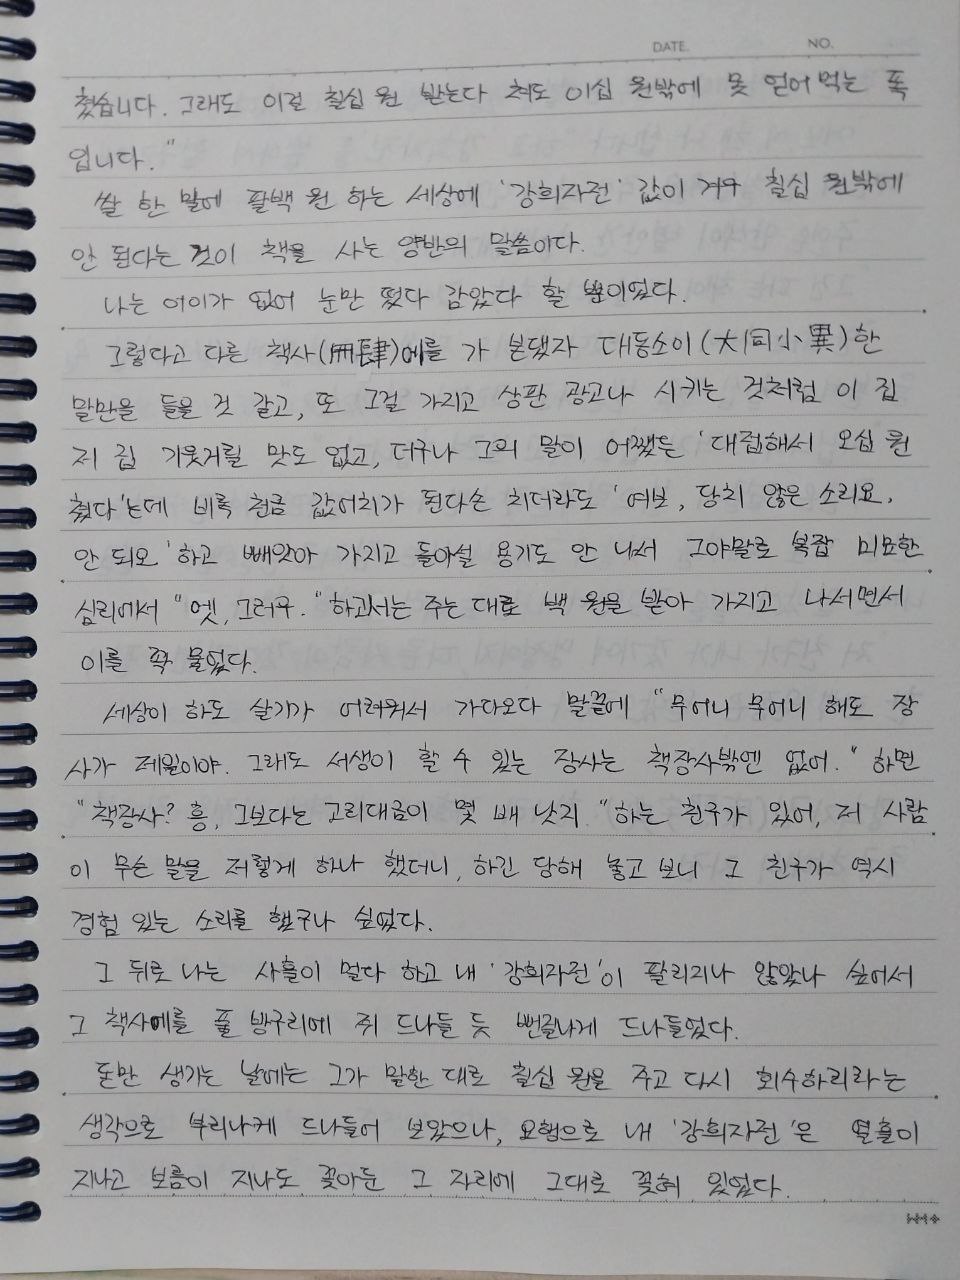 DATE. NO.
쳤습니다. 그래도 이걸 칠십 원 받는다 쳐도 이십 원밖에 못 얻어 먹는 폭
입니다."
쌀 한 말에 팔백 원 하는 세상에 '강희자전' 값이 겨우 칠십 원밖에
안 된다는 것이 책을 사는 양반의 말씀이다.
나는 어이가 없어 눈만 떴다 감았다 할 뿐이었다.
그렇다고 다른 책사(冊肆)에를 가 본댔자 대동소이(大同小異)한
말만을 들을 것 같고, 또 그걸 가지고 상판 광고나 시키는 것처럼 이 집
저 집 기웃거릴 맛도 없고, 더구나 그의 말이 어쨌든 '대접해서 오십 원
쳤다'는데 비록 천금 값어치가 된다손 치더라도 '여보, 당치 않은 소리요.
안 되오' 하고 빼앗아 가지고 돌아설 용기도 안 나서 그야말로 복잡 미묘한
심리에서 "엣, 그러우." 하고서는 주는 대로 백 원을 받아 가지고 나서면서
이를 꽉 물었다.
세상이 하도 살기가 어려워서 가다오다 말끝에 "무어니 무어니 해도 장
사가 제일이야. 그래도 서생이 할 수 있는 장사는 책장사밖엔 없어." 하면
"책장사? 흥, 그보다는 고리대금이 몇 배 낫지." 하는 친구가 있어, 저 사람
이 무슨 말을 저렇게 하나 했더니, 하긴 당해 놓고 보니 그 친구가 역시
경험 있는 소리를 했구나 싶었다.
그 뒤로 나는 사흘이 멀다 하고 내 '강희자전'이 팔리지나 않았나 싶어서
그 책사에를 풀 방구리에 쥐 드나들 듯 뻔질나게 드나들었다.
돈만 생기는 날에는 그가 말한 대로 칠십 원을 주고 다시 회수하리라는
생각으로 부리나케 드나들어 보았으나, 요행으로 내 '강희자전'은 열흘이
지나고 보름이 지나도 꽂아둔 그 자리에 그대로 꽂혀 있었다.